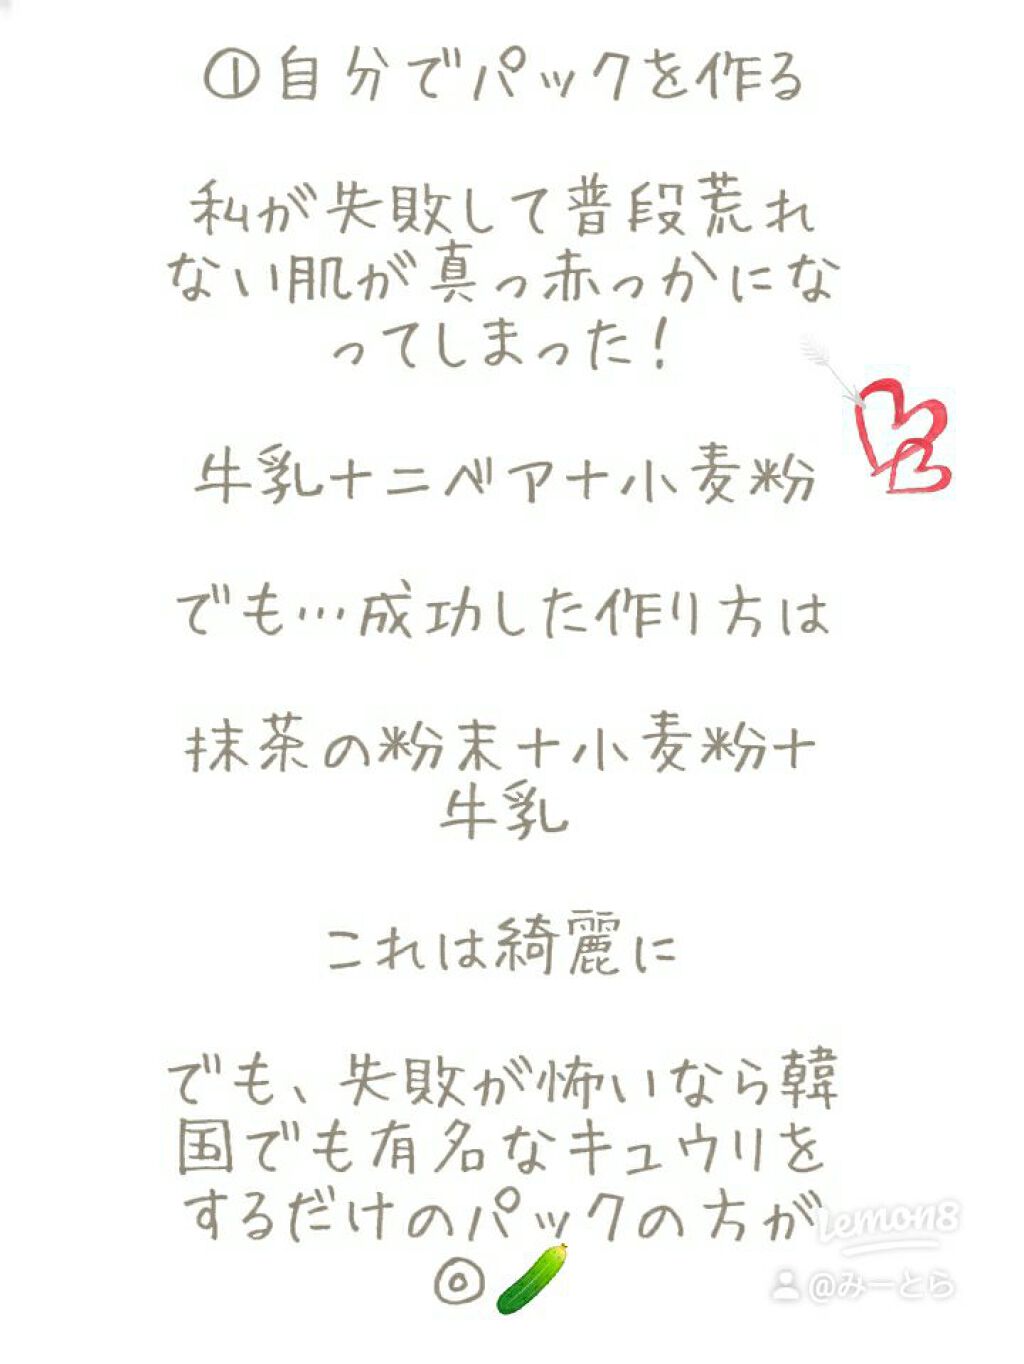 ①自分でパックを作る
私が失敗して普段荒れ
ない肌が真っ赤っかにな
ってしまった!
牛乳+ニベア+小麦粉
でも…成功した作り方は
抹茶の粉末+小麦粉+
牛乳
これは綺麗に
でも、失敗が怖いなら韓
国でも有名なキュウリを
するだけのパックの方が
◎
lemon8
@みーとら